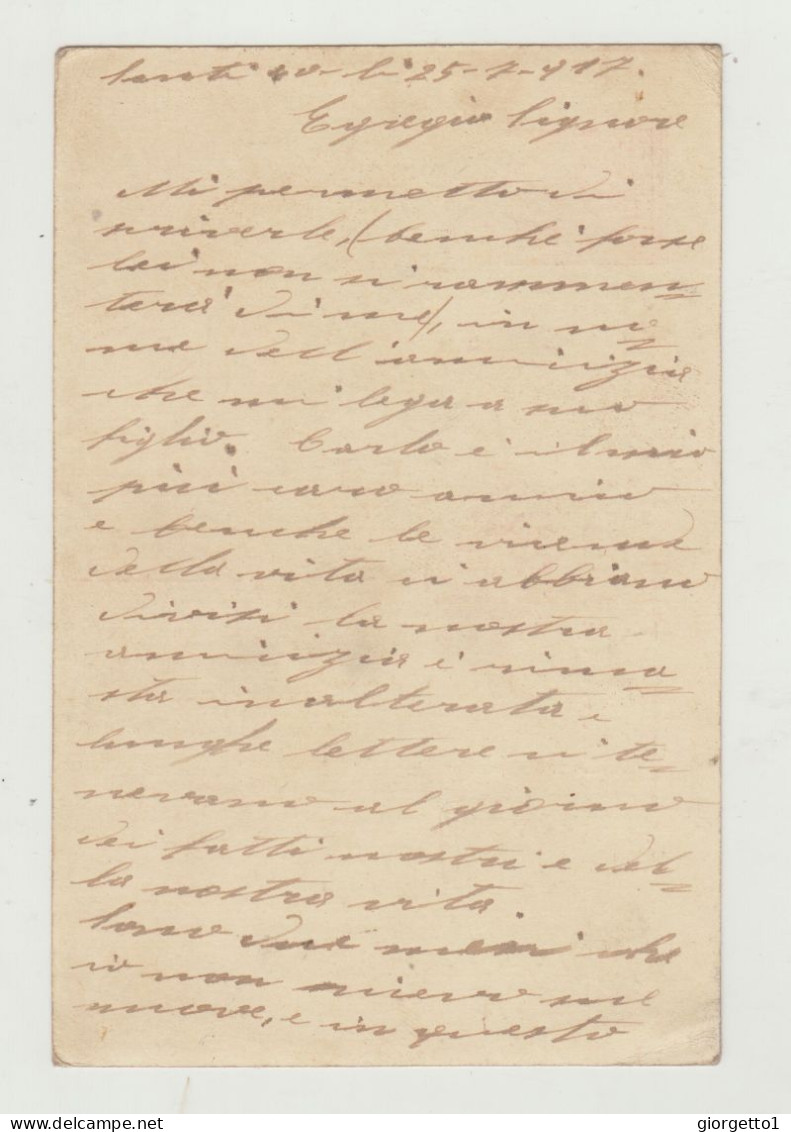 li 25-7-917.
Egregio Signore
Mi permetto di
scriverle, (benchè forse
lei non si rammen=
terà di me), in no=
me dell'amicizia
che mi lega a suo
figlio. Carlo è il mio
più caro amico
e benche le vicende
della vita ci abbiano
divisi la nostra
amicizia è rima=
sta inalterata e
lunghe lettere ci te=
nevano al giorno
dei fatti nostri e del=
la nostra vita.
Sono due mesi che
io non ricevo sue
nuove, e in questo
giorgetto1